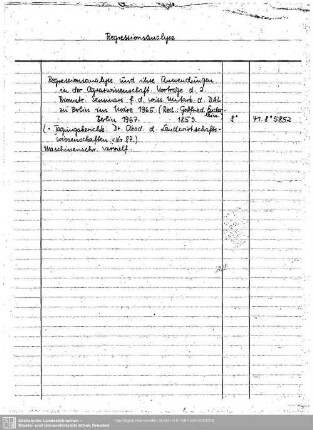 Regressionsanalyse
Regressionsanalyse und ihre Anwendungen
in der Agrarwissenschaft. Vorträge d. 2.
Biometr. Seminars f. d. wiss. Mitarb. d. DAL
zu Berlin im 1965. (Red.: Gottfried
Berlin 1967. 185 S. 8° 41. 8° 5852
(= Tagungsberichte. Dt. Akad. d. Landwirtschafts-
wissenschaften. Nr 87.)
Maschinenschr. vervielf.
Sächsische Landesbibliothek -
Staats- und Universitätsbibliothek Dresden